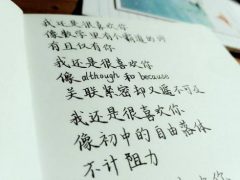 我还是很喜欢你
像数学里有个霸道的词
有且仅有你
我还是很喜欢你
像although和because
关联紧密却又密不可及
我还是很喜欢你
像初中的自由落体
不计阻力